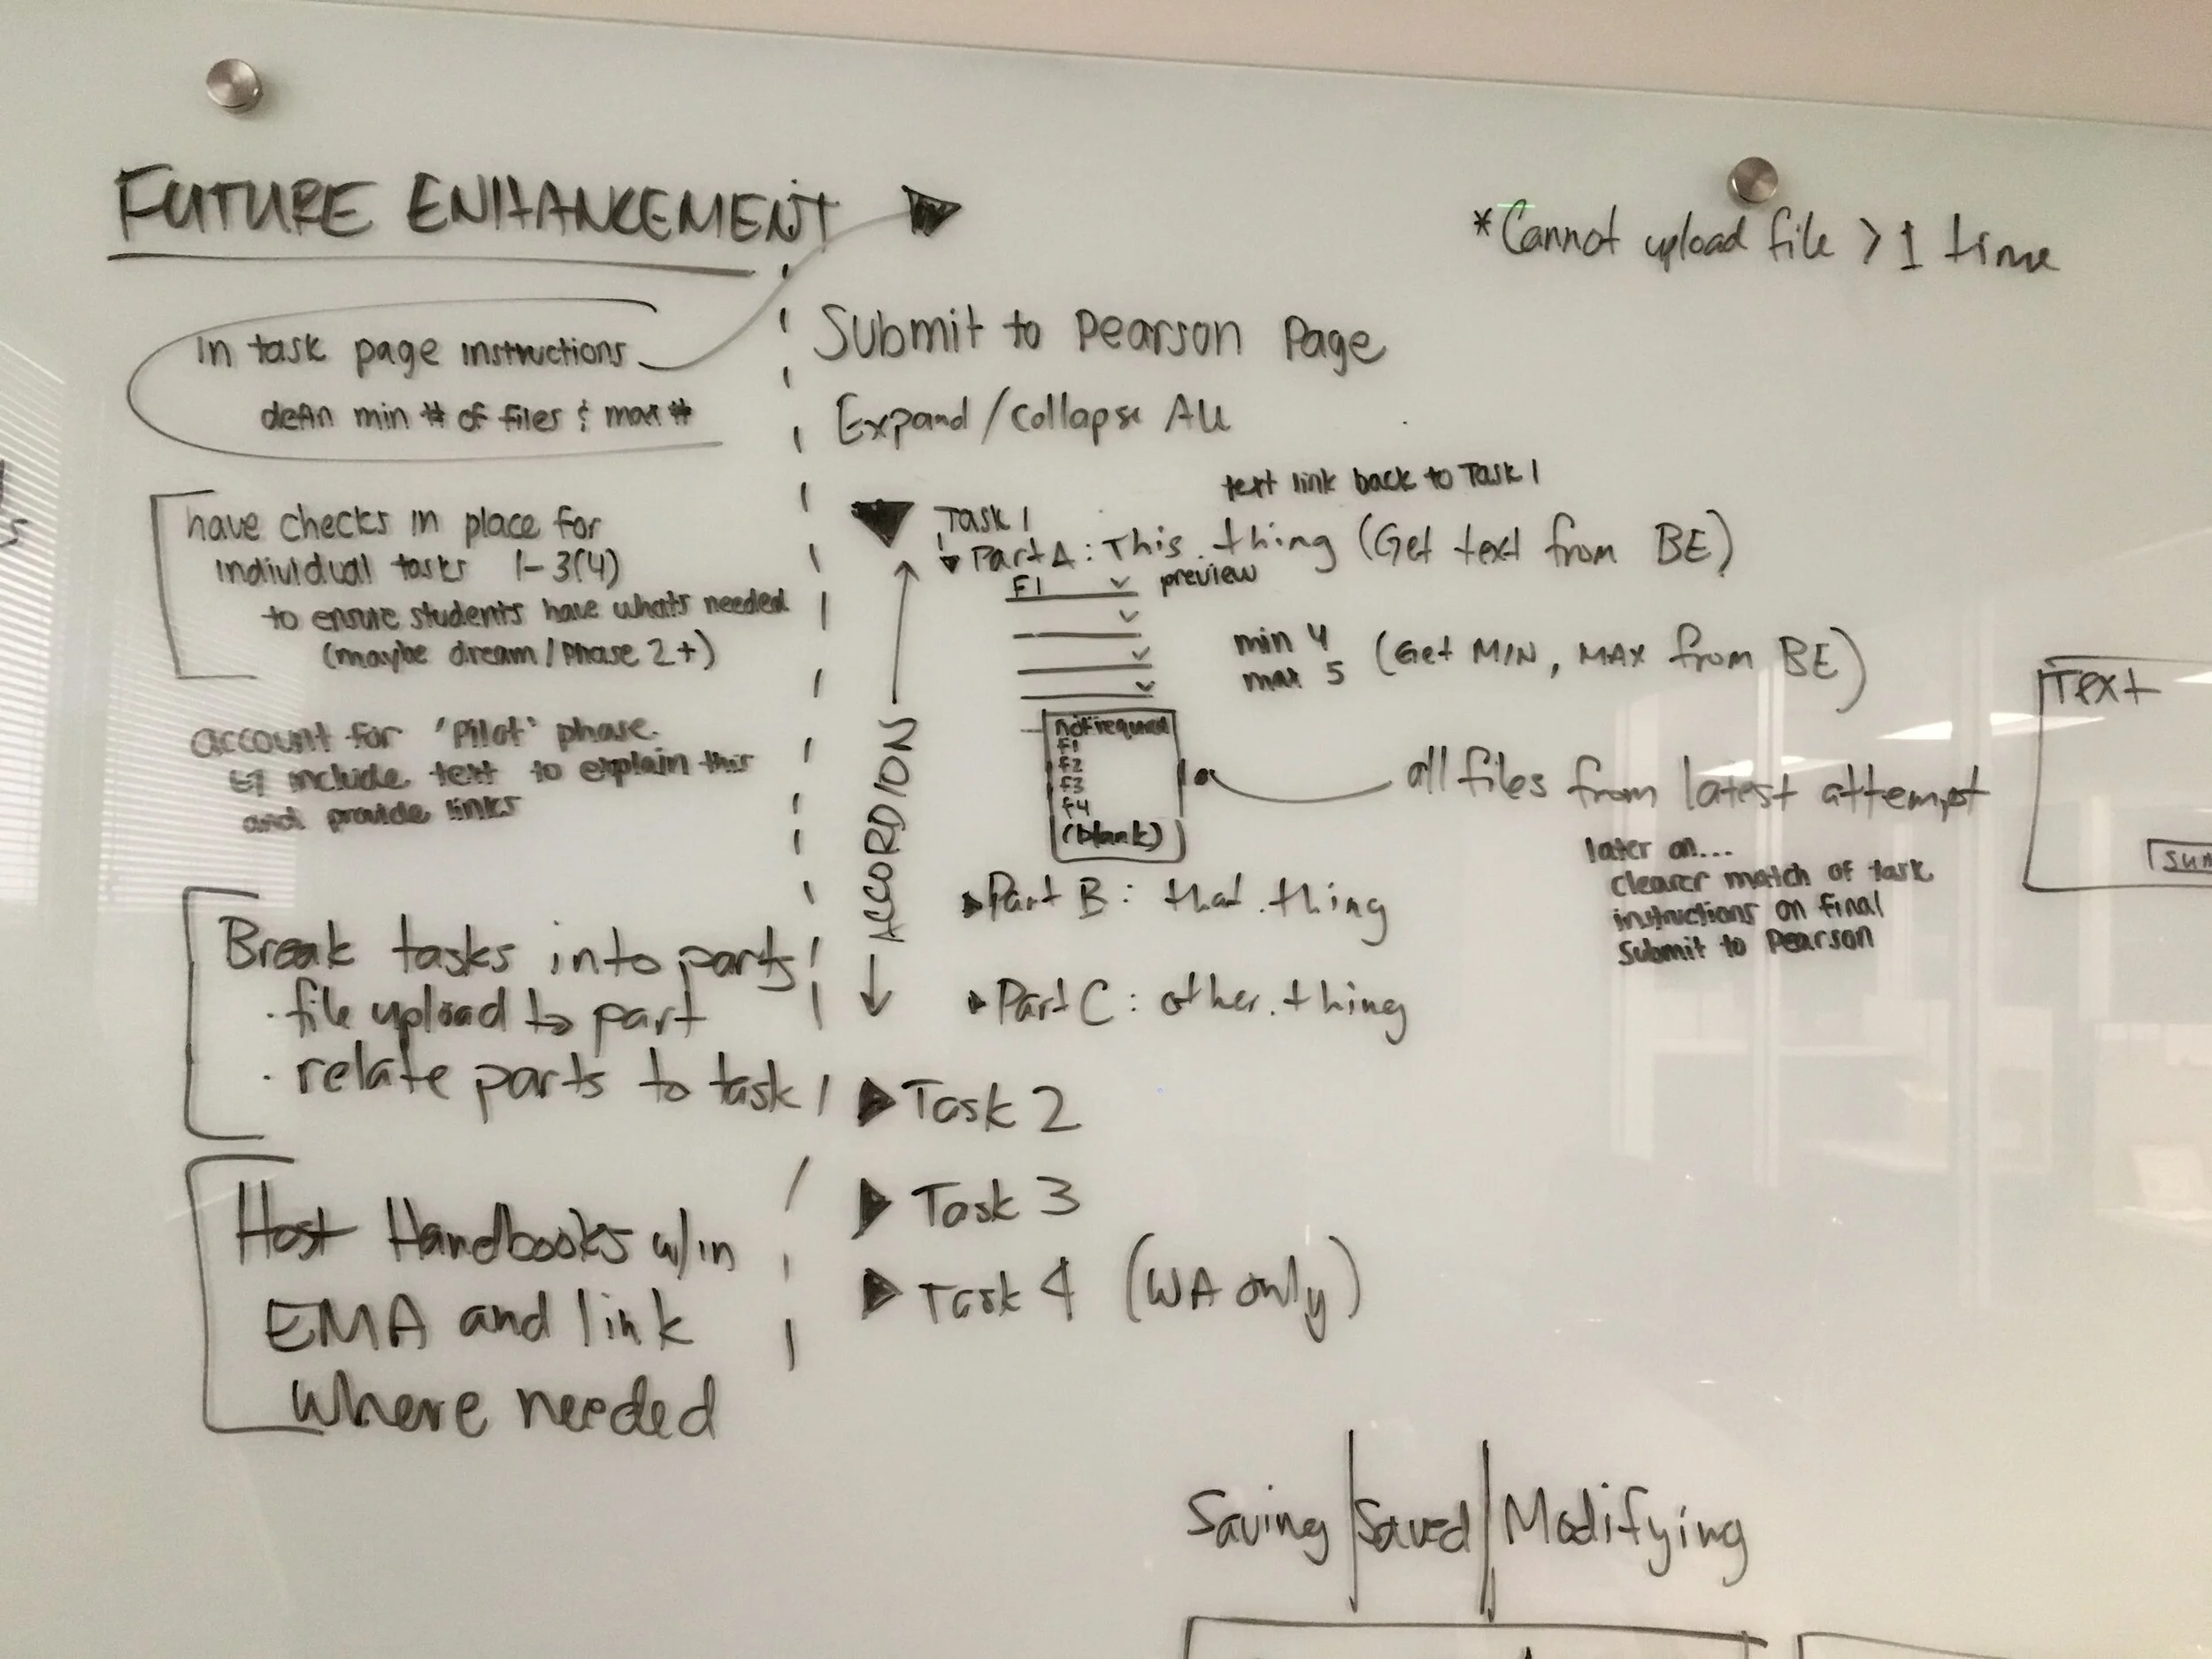 FUTURE ENHANCEMENT
in task page instructions
defin min # of files & max #
have checks in place for
individual tasks 1-3(4)
to ensure students have whats needed
(maybe dream/Phase 2+)
account for 'Pilot' phase.
include text to explain this
and provide links
Break tasks into parts
· file upload to part
· relate parts to task
Host Handbooks w/in
EMA and link
where needed
*Cannot upload file > 1 time
Submit to Pearson Page
Expand/Collapse All
text link back to Task 1
Task 1
Part A: This.thing (Get text from BE)
F1
preview
min 4
max 5
(Get MIN, MAX from BE)
not required
f1
f2
f3
f4
(blank)
all files from latest attempt
later on...
clearer match of task
instructions on final
Submit to Pearson
ACCORDION
Part B: that.thing
Part C: other.thing
Task 2
Task 3
Task 4 (WA only)
Text
Saving | Saved | Modifying